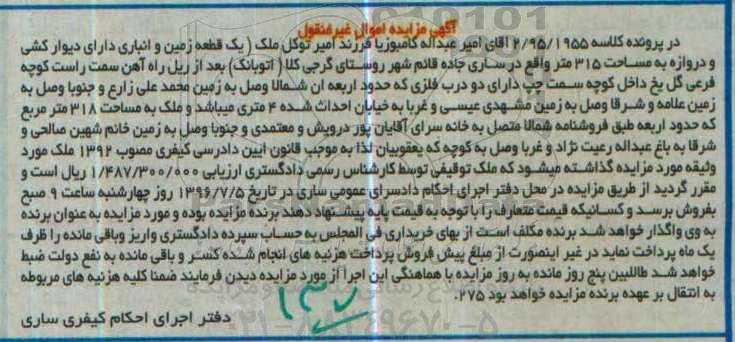 آگهی مزایده اموال غیرمنقول
در پرونده کلاسه ۲/۹۵/۱۹۵۵ اقای امیر عبداله کامبوزیا فرزند امیر توکل ملک ( یک قطعه زمین و انباری دارای دیوار کشی
و دروازه به مساحت ۳۱۵ متر واقع در ساری جاده قائم شهر روستای گرجی کلا ( اتوبانک) بعد از ریل راه آهن سمت راست کوچه
فرعی گل یخ داخل کوچه سمت چپ دارای دو درب فلزی که حدود اربعه ان شمالا وصل به زمین محمد علی زارع و جنوبا وصل به
زمین علامه و شرقا وصل به زمین مشهدی عیسی و غربا به خیابان احداث شده ۴ متری میباشد و ملک به مساحت ۳۱۸ متر مربع
که حدود اربعه طبق فروشنامه شمالا متصل به خانه سرای آقایان پور درویش و معتمدی و جنوبا وصل به زمین خانم شهین صالحی و
شرقا به باغ عبداله رعیت نژاد و غربا وصل به کوچه که یعقوبیان لذا به موجب قانون ایین دادرسی کیفری مصوب ۱۳۹۲ ملک مورد
وثیقه مورد مزایده گذاشته میشود که ملک توقیفی توسط کارشناس رسمی دادگستری ارزیابی ۱/۴۸۷/۳۰۰/۰۰۰ ریال است و
مقرر گردید از طریق مزایده در محل دفتر اجرای احکام دادسرای عمومی ساری در تاریخ ۱۳۹۶/۷/۵ روز چهارشنبه ساعت ۹ صبح
بفروش برسد و کسانیکه قیمت متعارف را با توجه به قیمت پایه پیشنهاد دهند برنده مزایده بوده و مورد مزایده به عنوان برنده
به وی واگذار خواهد شد برنده مکلف است از بهای خریداری فی المجلس به حساب سپرده دادگستری واریز وباقی مانده را ظرف
یک ماه پرداخت نماید در غیر اینصورت از مبلغ پیش فروش پرداخت هزینه های انجام شده کسر و باقی مانده به نفع دولت ضبط
خواهد شد طاللبین پنج روز مانده به روز مزایده با هماهنگی این اجرا از مورد مزایده دیدن فرمایند ضمنا کلیه هزینه های مربوطه
به انتقال بر عهده برنده مزایده خواهد بود ۲۷۵.
دفتر اجرای احکام کیفری ساری
۱۳۷
۰۲۱-۸۸۳۴۹۶۷۰-۵